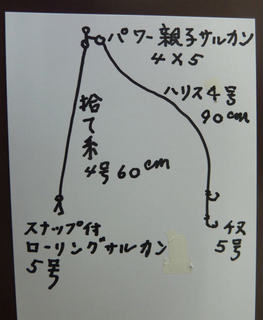 パワー親子サルカン
4×5
ハリス4号
90cm
捨て糸
4号60cm
スナップ付
ローリングサルカン
5号
チヌ
5号